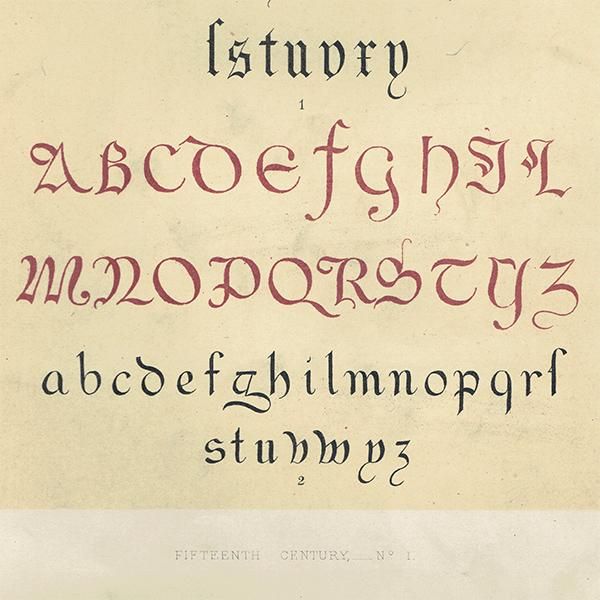 ſstuvxy
1
ABCDEfGHIL
MNOPQRSTYZ
abcdefghilmnopqrſ
stuvwyz
2
FIFTEENTH CENTURY,__Nº I.